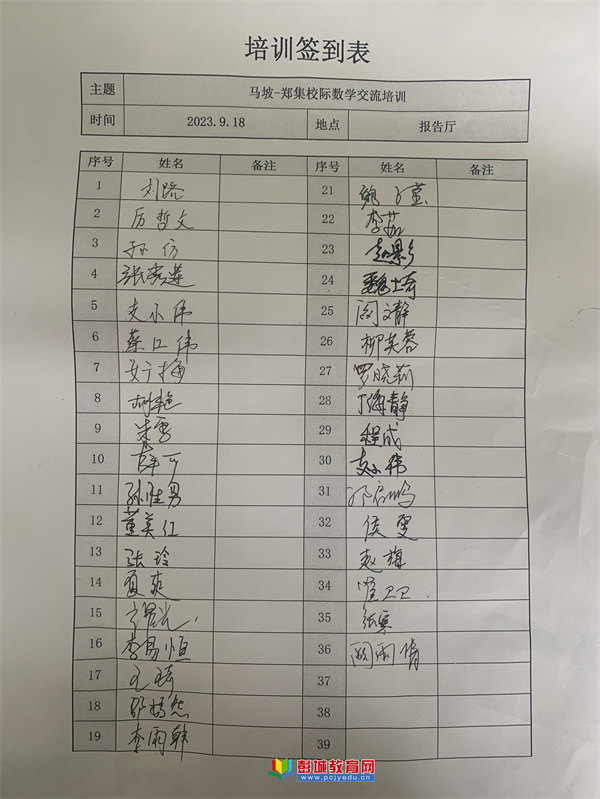 培训签到表
主题 马坡-郑集校际数学交流培训
时间 2023.9.18 地点 报告厅
序号 姓名 备注 序号 姓名 备注
1 刘璐 21
2 厉哲文 22 李茹
3 孙仿 23
4 张秀莲 24 魏士奇
5 支小伟 25 阎文静
6 蔡江伟 26 柳芙蓉
7 27 罗晓莉
8 胡艳 28 丁海静
9 朱雪 29 程成
10 30 支小伟
11 孙胜男 31 邓启鹏
12 董美红 32 侯雯
13 张玲 33 赵梅
14 夏爽 34
15 35 张寒
16 李易恒 36
17 王琦 37
18 鄢嫣然 38
19 李雨轩 39
彭城教育网
www.pcjyedu.cn